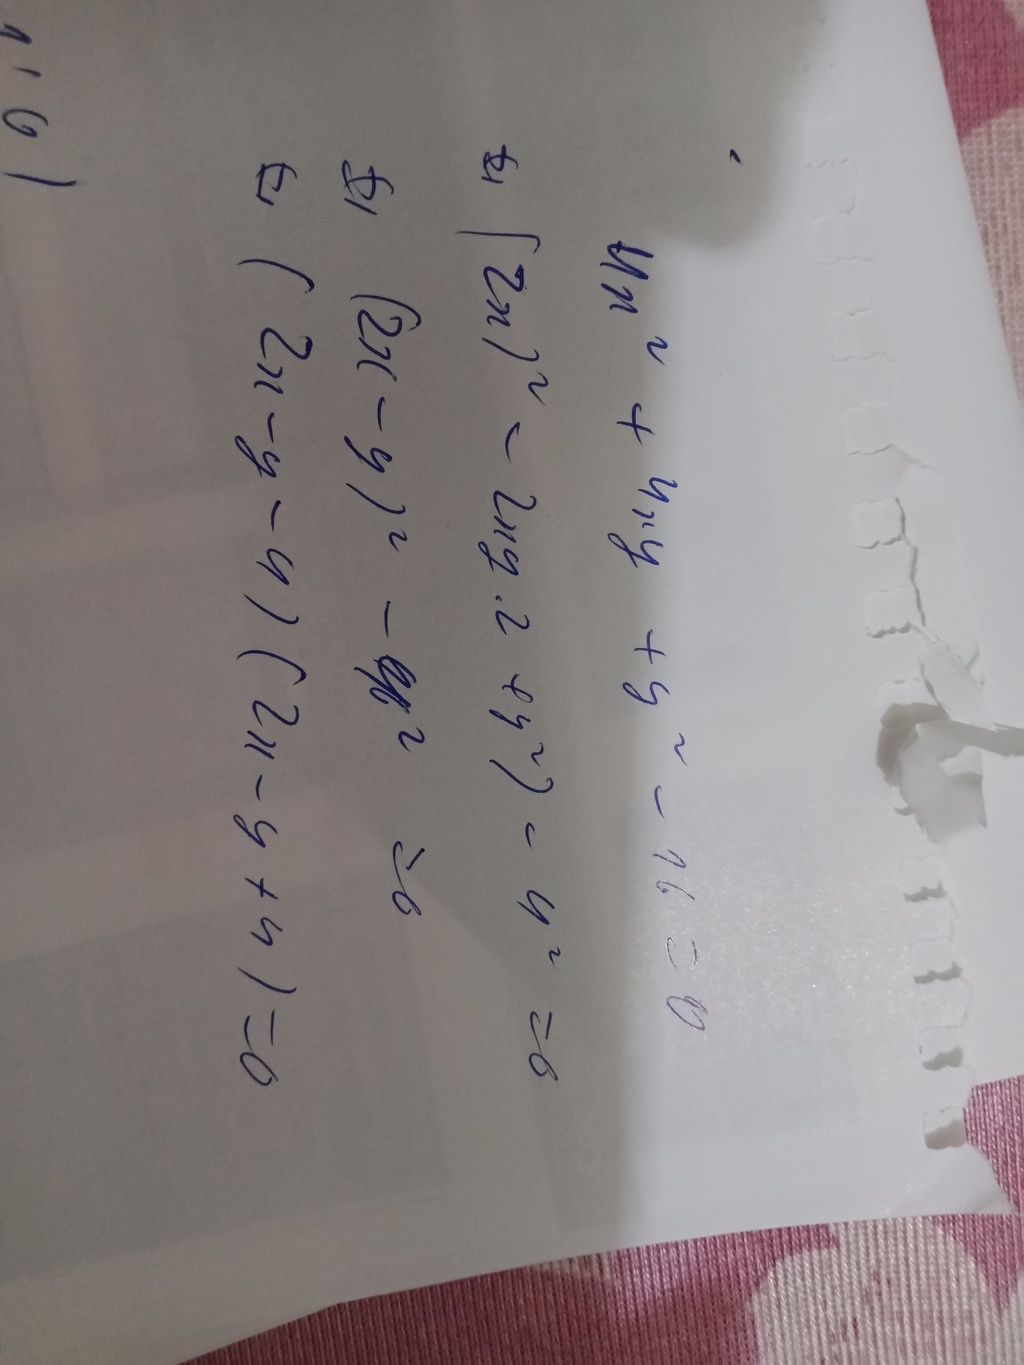 4x² + 4xy + y² - 16 = 0
⇔ (2x)² - 2xy.2 + y²) - 4² = 0
⇔ (2x - y)² - 4² = 0
⇔ (2x - y - 4)(2x - y + 4) = 0